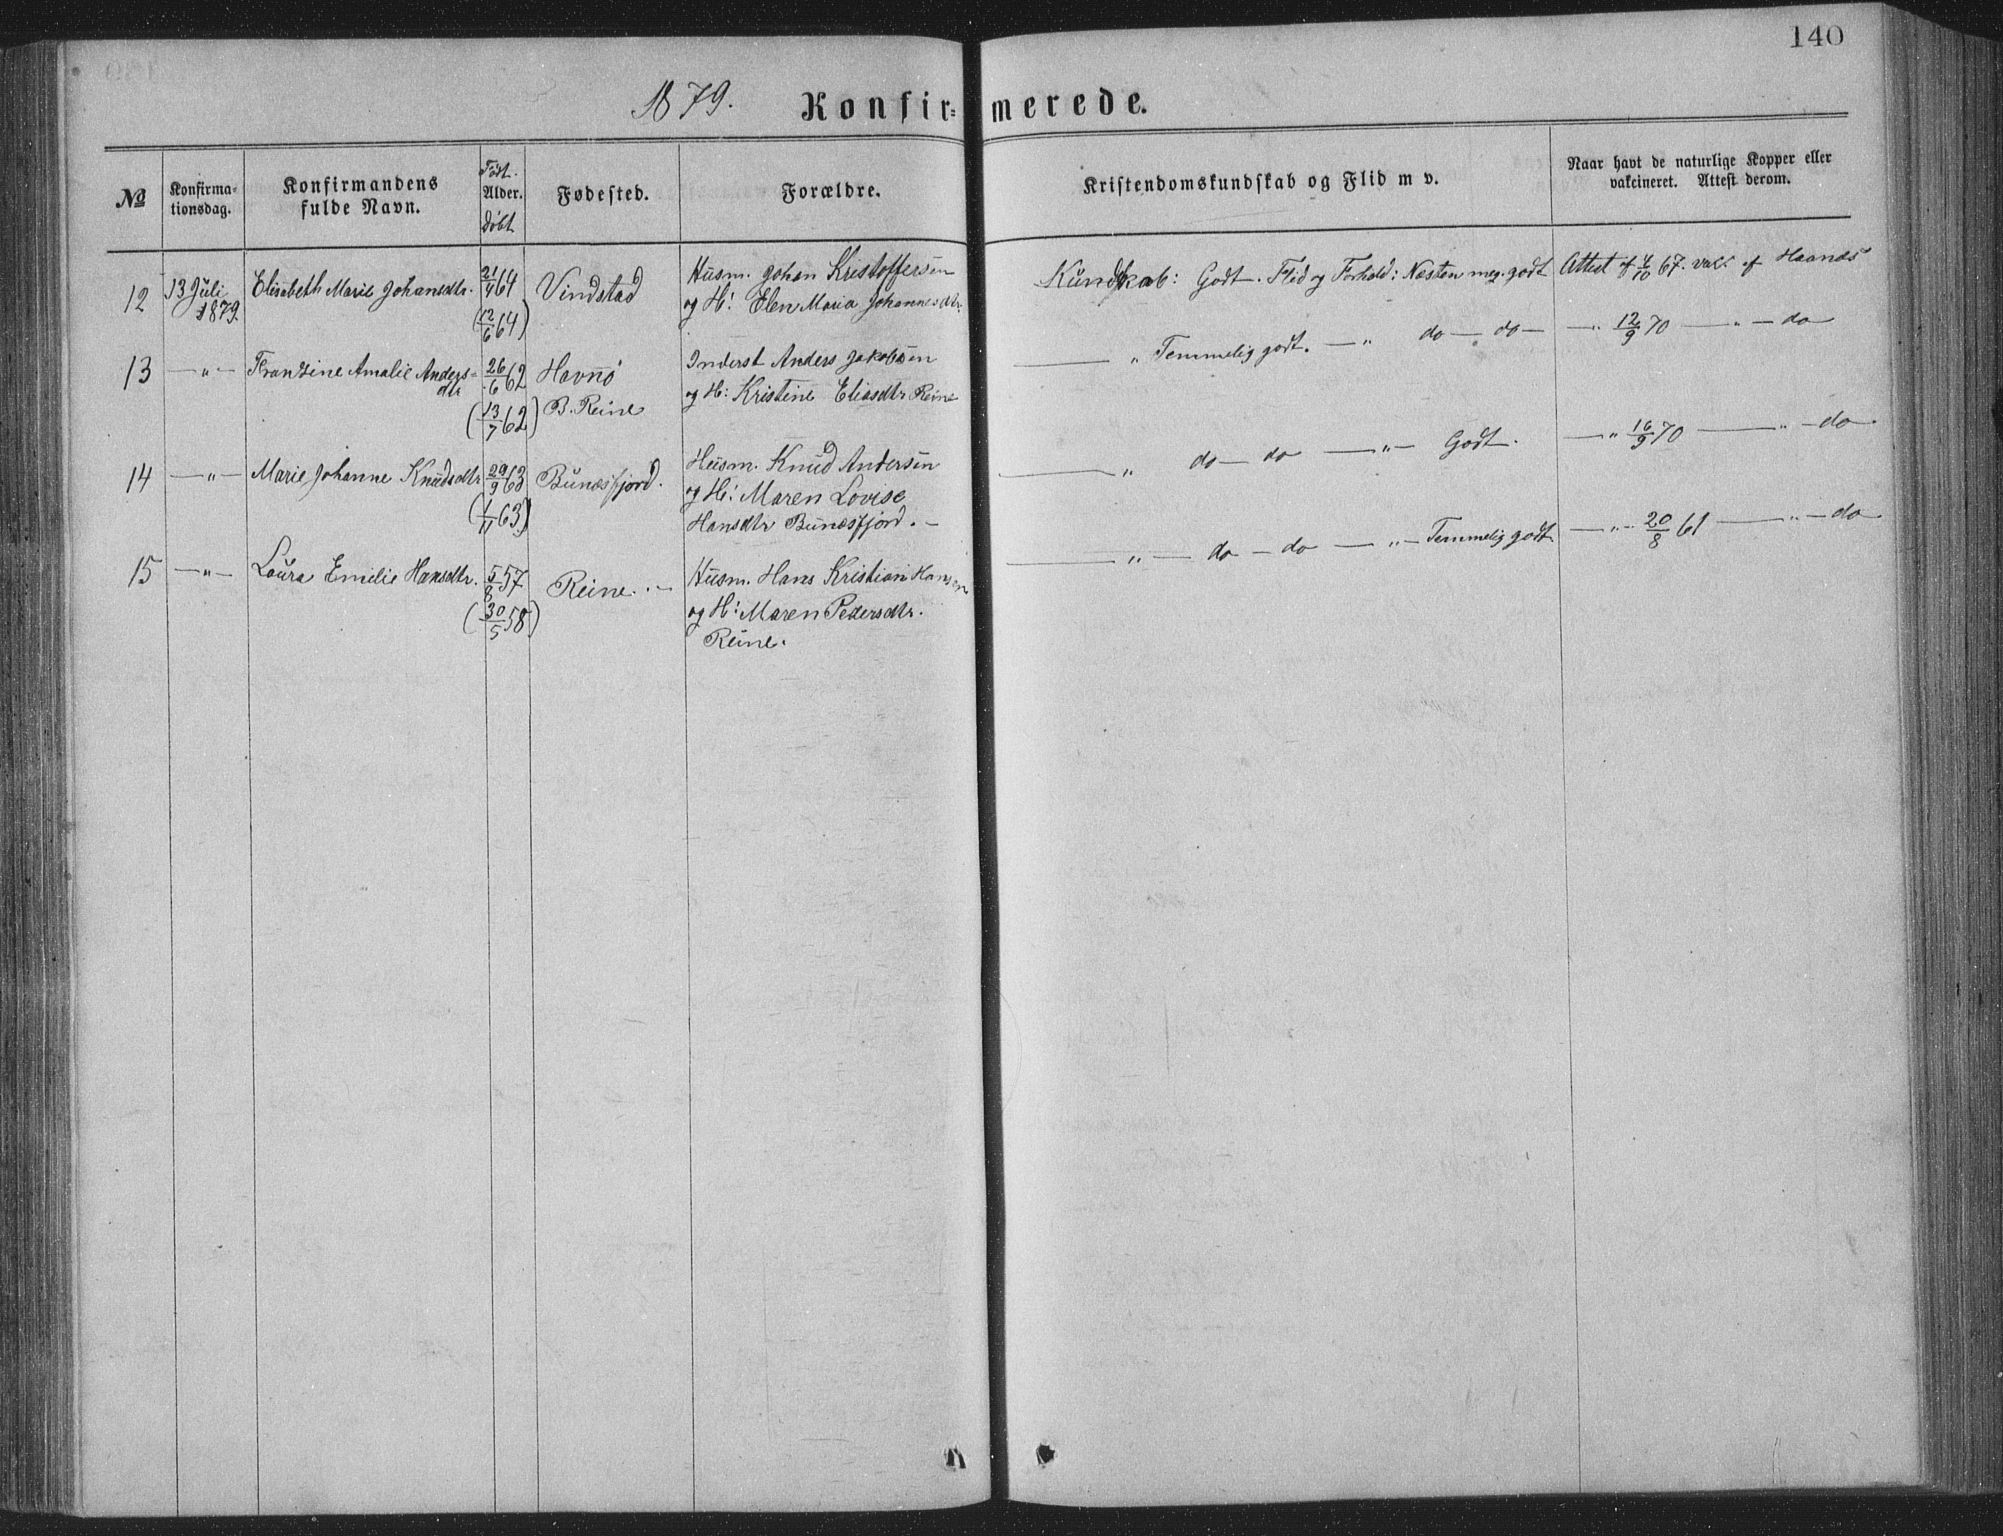 140
1879. Konfirmerede.
№
Konfirmationsdag.
Konfirmandens fulde Navn.
Født. Alder. Døbt
Fødested.
Forældre.
Kristendomskundskab og Flid m v.
Naar havt de naturlige Kopper eller vakcineret. Attest derom.
12 13 Juli 1879. Elisabeth Marie Johansdtr. 21/4 64 (12/6 64) Vindstad
Husm. Johan Kristoffersen
og H: Elen Maria Johannesdtr.
Kundskab: Godt. Flid og Forhold: Næsten meg. godt
Attest af 4/10 67. vakc. af Haanæs
13 — " — Frantzine Amalie Andersdtr 26/6 62 (13/7 62) Havnø B. Reine
Inderst Anders Jakobsen
og H: Kristine Eliasdtr Reine
— " Temmelig godt. — " do — do —
— " 12/9 70 — " — do
14 — " — Marie Johanne Knudsdtr 29/9 63 (1/11 63) Bunæsfjord.
Husm. Knud Andersen
og H: Maren Lovise
Hansdtr Bunæsfjord. —
— " do — do — " — Godt.
— " 16/9 70 — " — do
15 — " — Laura Emilie Hansdtr. 5/8 57 (30/5 58) Reine. —
Husm. Hans Kristian Hansen
og H: Maren Pedersdtr.
Reine.
— " — do — do — " — Temmelig godt
— " — 20/8 61 — " — do